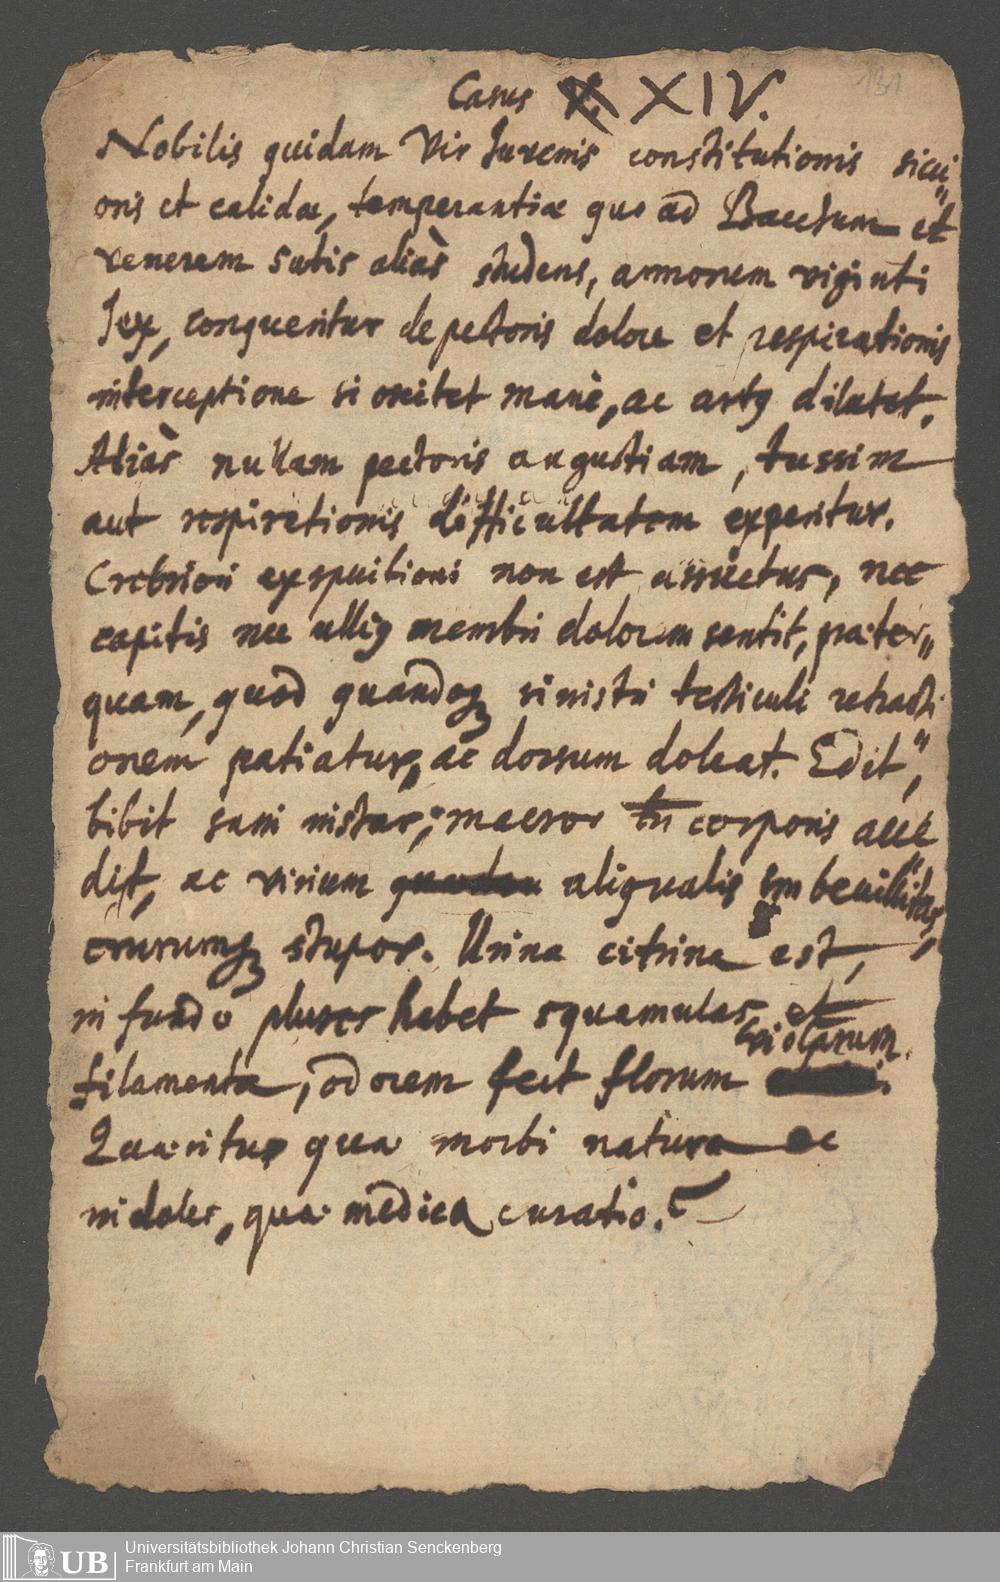 131
Casus V. XIV.
Nobilis quidam Vir Juvenis constitutionis sicci„
oris et calidae, temperantiae quo ad Bacchum et
venerem satis aliàs studens, annorum viginti
sex, conqueritur de pectoris dolore et respirationis
interceptione si oscitet manè, ac artus dilatet.
Aliàs nullam pectoris angustiam, tussim
aut respirationis difficultatem experitur.
Crebriori exspuitioni non est assuetus, nec
capitis nec ullius membri dolorem sentit, praeter„
quam, quod quandoque sinistri testiculi retracti„
onem patiatur, ac dorsum doleat. Edit,
bibit sani instar; macror tn corporis acce„
dit, ac virium aliqualis imbecillitas,
crurumque stupor. Urina citrina est,
in fundo plures habet squamulas et
filamenta, odorem fert florum violarum.
Quaeritur quae morbi natura ac
indoles, quae medica curatio.
UB
Universitätsbibliothek Johann Christian Senckenberg
Frankfurt am Main